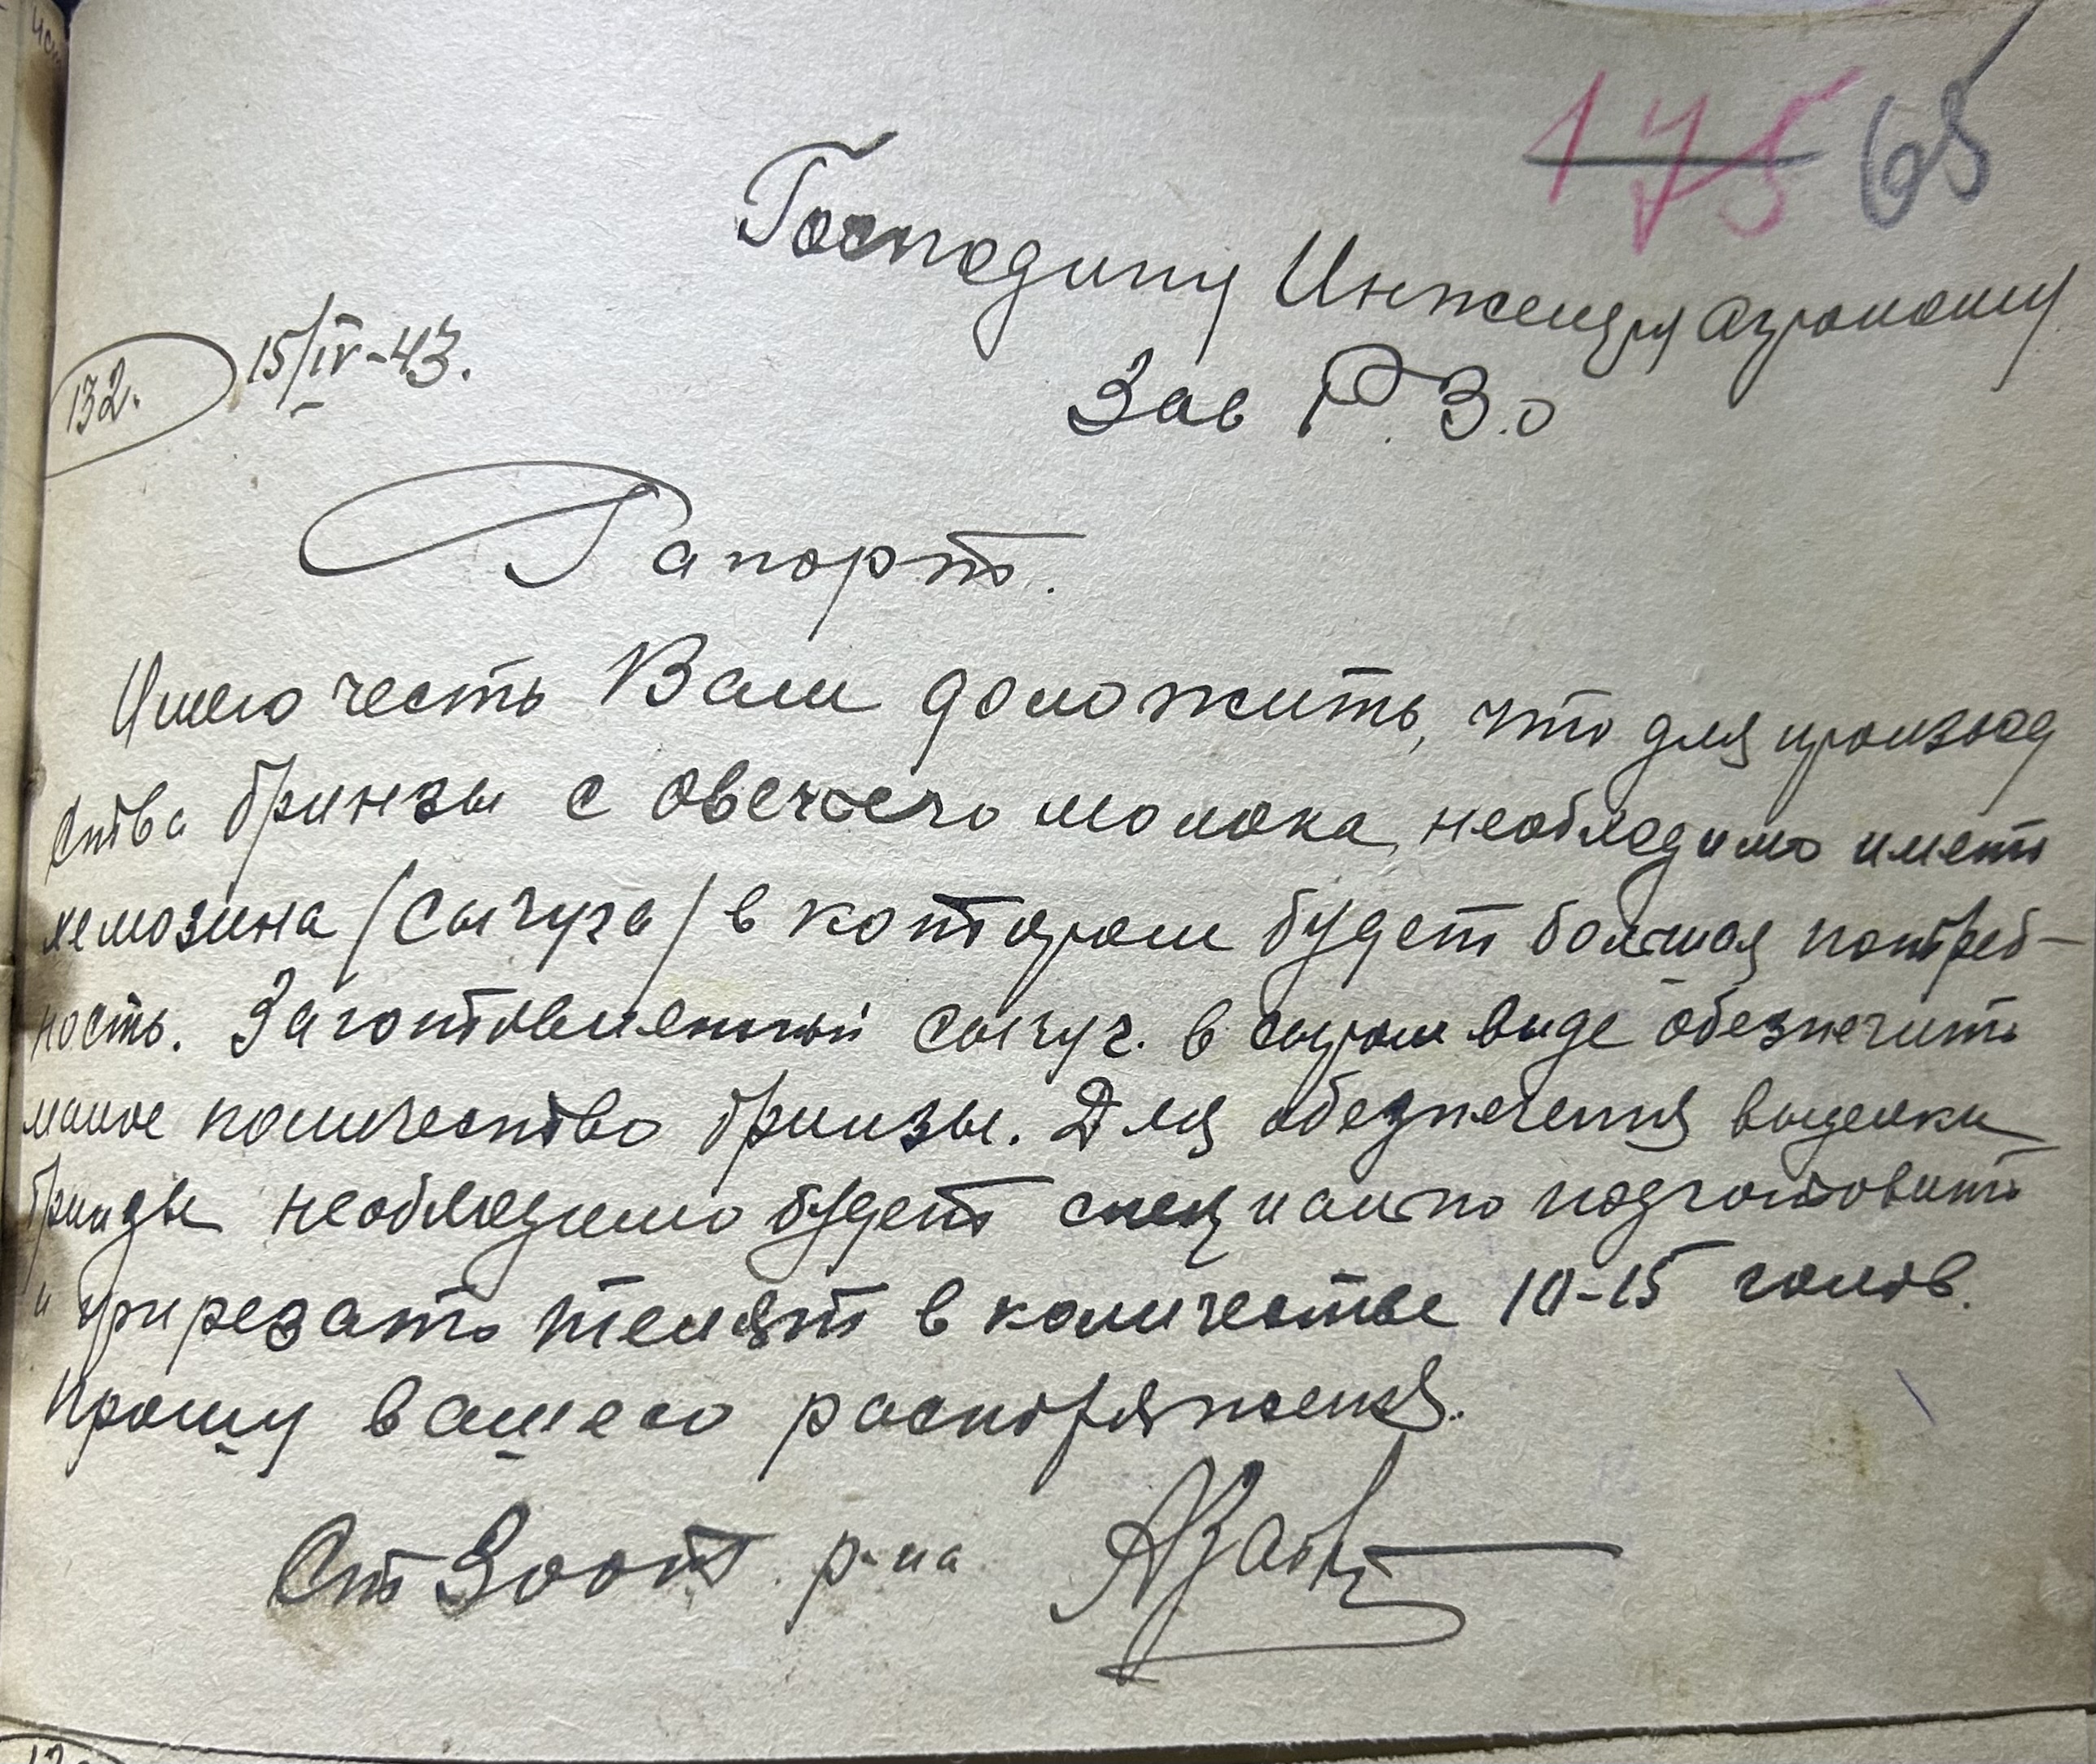 175 65
Господину Инженеру агроному
132. 15/IV-43.
Зав Р.З.о
Рапорт.
Имею честь Вам доложить, что для производ
ства брынзы с овечьего молока, необходимо иметь
хемозина /сычуга/ в котором будет большая потреб-
ность. Заготовленный сычуг. в сыром виде обезпечить
малое количество брынзы. Для обезпечения выделки
брындзы необходимо будет специально подготовить
и прирезать телят в количестве 10-15 голов.
Прошу вашего распоряжения.
Ст Зоот. р-на